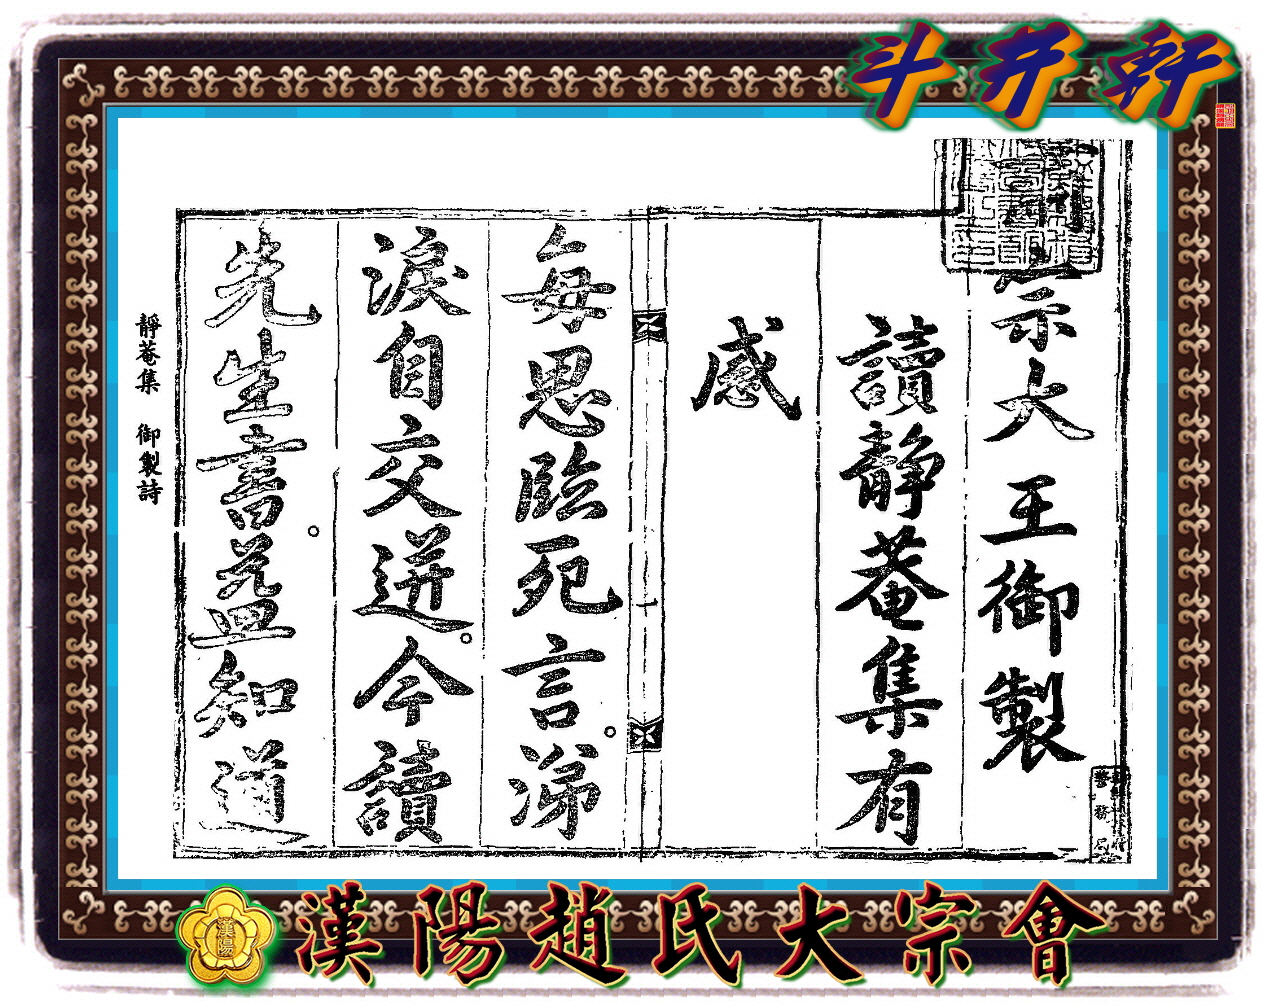 斗井軒
宗大王御製
讀靜菴集有
感
每思臨死言。涕
淚自交迸。今讀
先生書。益知道
靜菴集 御製詩
警務局
漢陽
漢陽趙氏大宗會